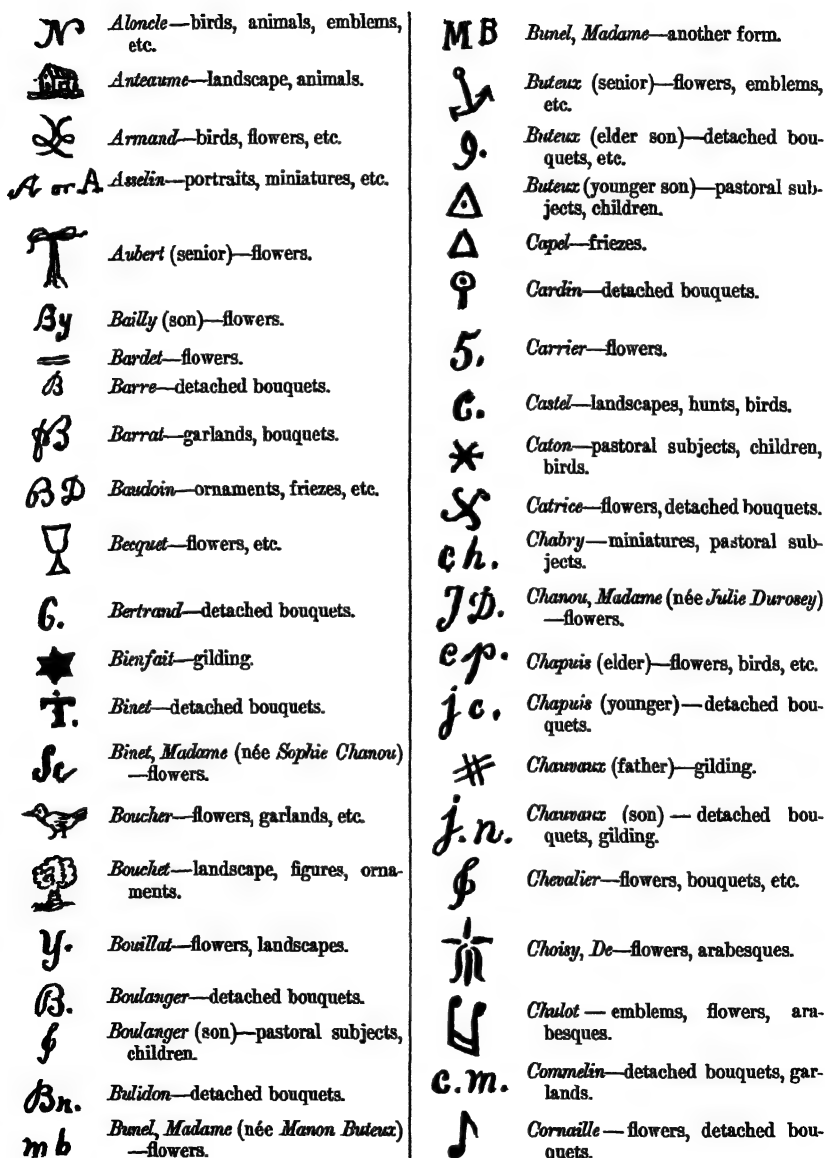 N Aloncle—birds, animals, emblems,
etc.
Anteaume—landscape, animals.
Armand—birds, flowers, etc.
A or A Asselin—portraits, miniatures, etc.
Aubert (senior)—flowers.
By Bailly (son)—flowers.
Bardet—flowers.
B Barre—detached bouquets.
Barrat—garlands, bouquets.
BD Baudoin—ornaments, friezes, etc.
Becquet—flowers, etc.
6. Bertrand—detached bouquets.
Bienfait—gilding.
T. Binet—detached bouquets.
Sc Binet, Madame (née Sophie Chanou)
—flowers.
Boucher—flowers, garlands, etc.
Bouchet—landscape, figures, orna-
ments.
Y. Bouillat—flowers, landscapes.
B. Boulanger—detached bouquets.
Boulanger (son)—pastoral subjects,
children.
Bn. Bulidon—detached bouquets.
m b Bunel, Madame (née Manon Buteux)
—flowers.
M B Bunel, Madame—another form.
Buteux (senior)—flowers, emblems,
etc.
9. Buteux (elder son)—detached bou-
quets, etc.
Buteux (younger son)—pastoral sub-
jects, children.
Capel—friezes.
Cardin—detached bouquets.
5. Carrier—flowers.
C. Castel—landscapes, hunts, birds.
Caton—pastoral subjects, children,
birds.
Catrice—flowers, detached bouquets.
ch. Chabry—miniatures, pastoral sub-
jects.
J D. Chanou, Madame (née Julie Durosey)
—flowers.
c p. Chapuis (elder)—flowers, birds, etc.
j c. Chapuis (younger)—detached bou-
quets.
Chauvaux (father)—gilding.
j. n. Chauvaux (son) — detached bou-
quets, gilding.
Chevalier—flowers, bouquets, etc.
Choisy, De—flowers, arabesques.
Chulot — emblems, flowers, ara-
besques.
c.m. Commelin—detached bouquets, gar-
lands.
Cornaille — flowers, detached bou-
quets.